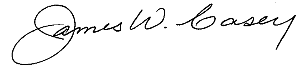 James W. Casey